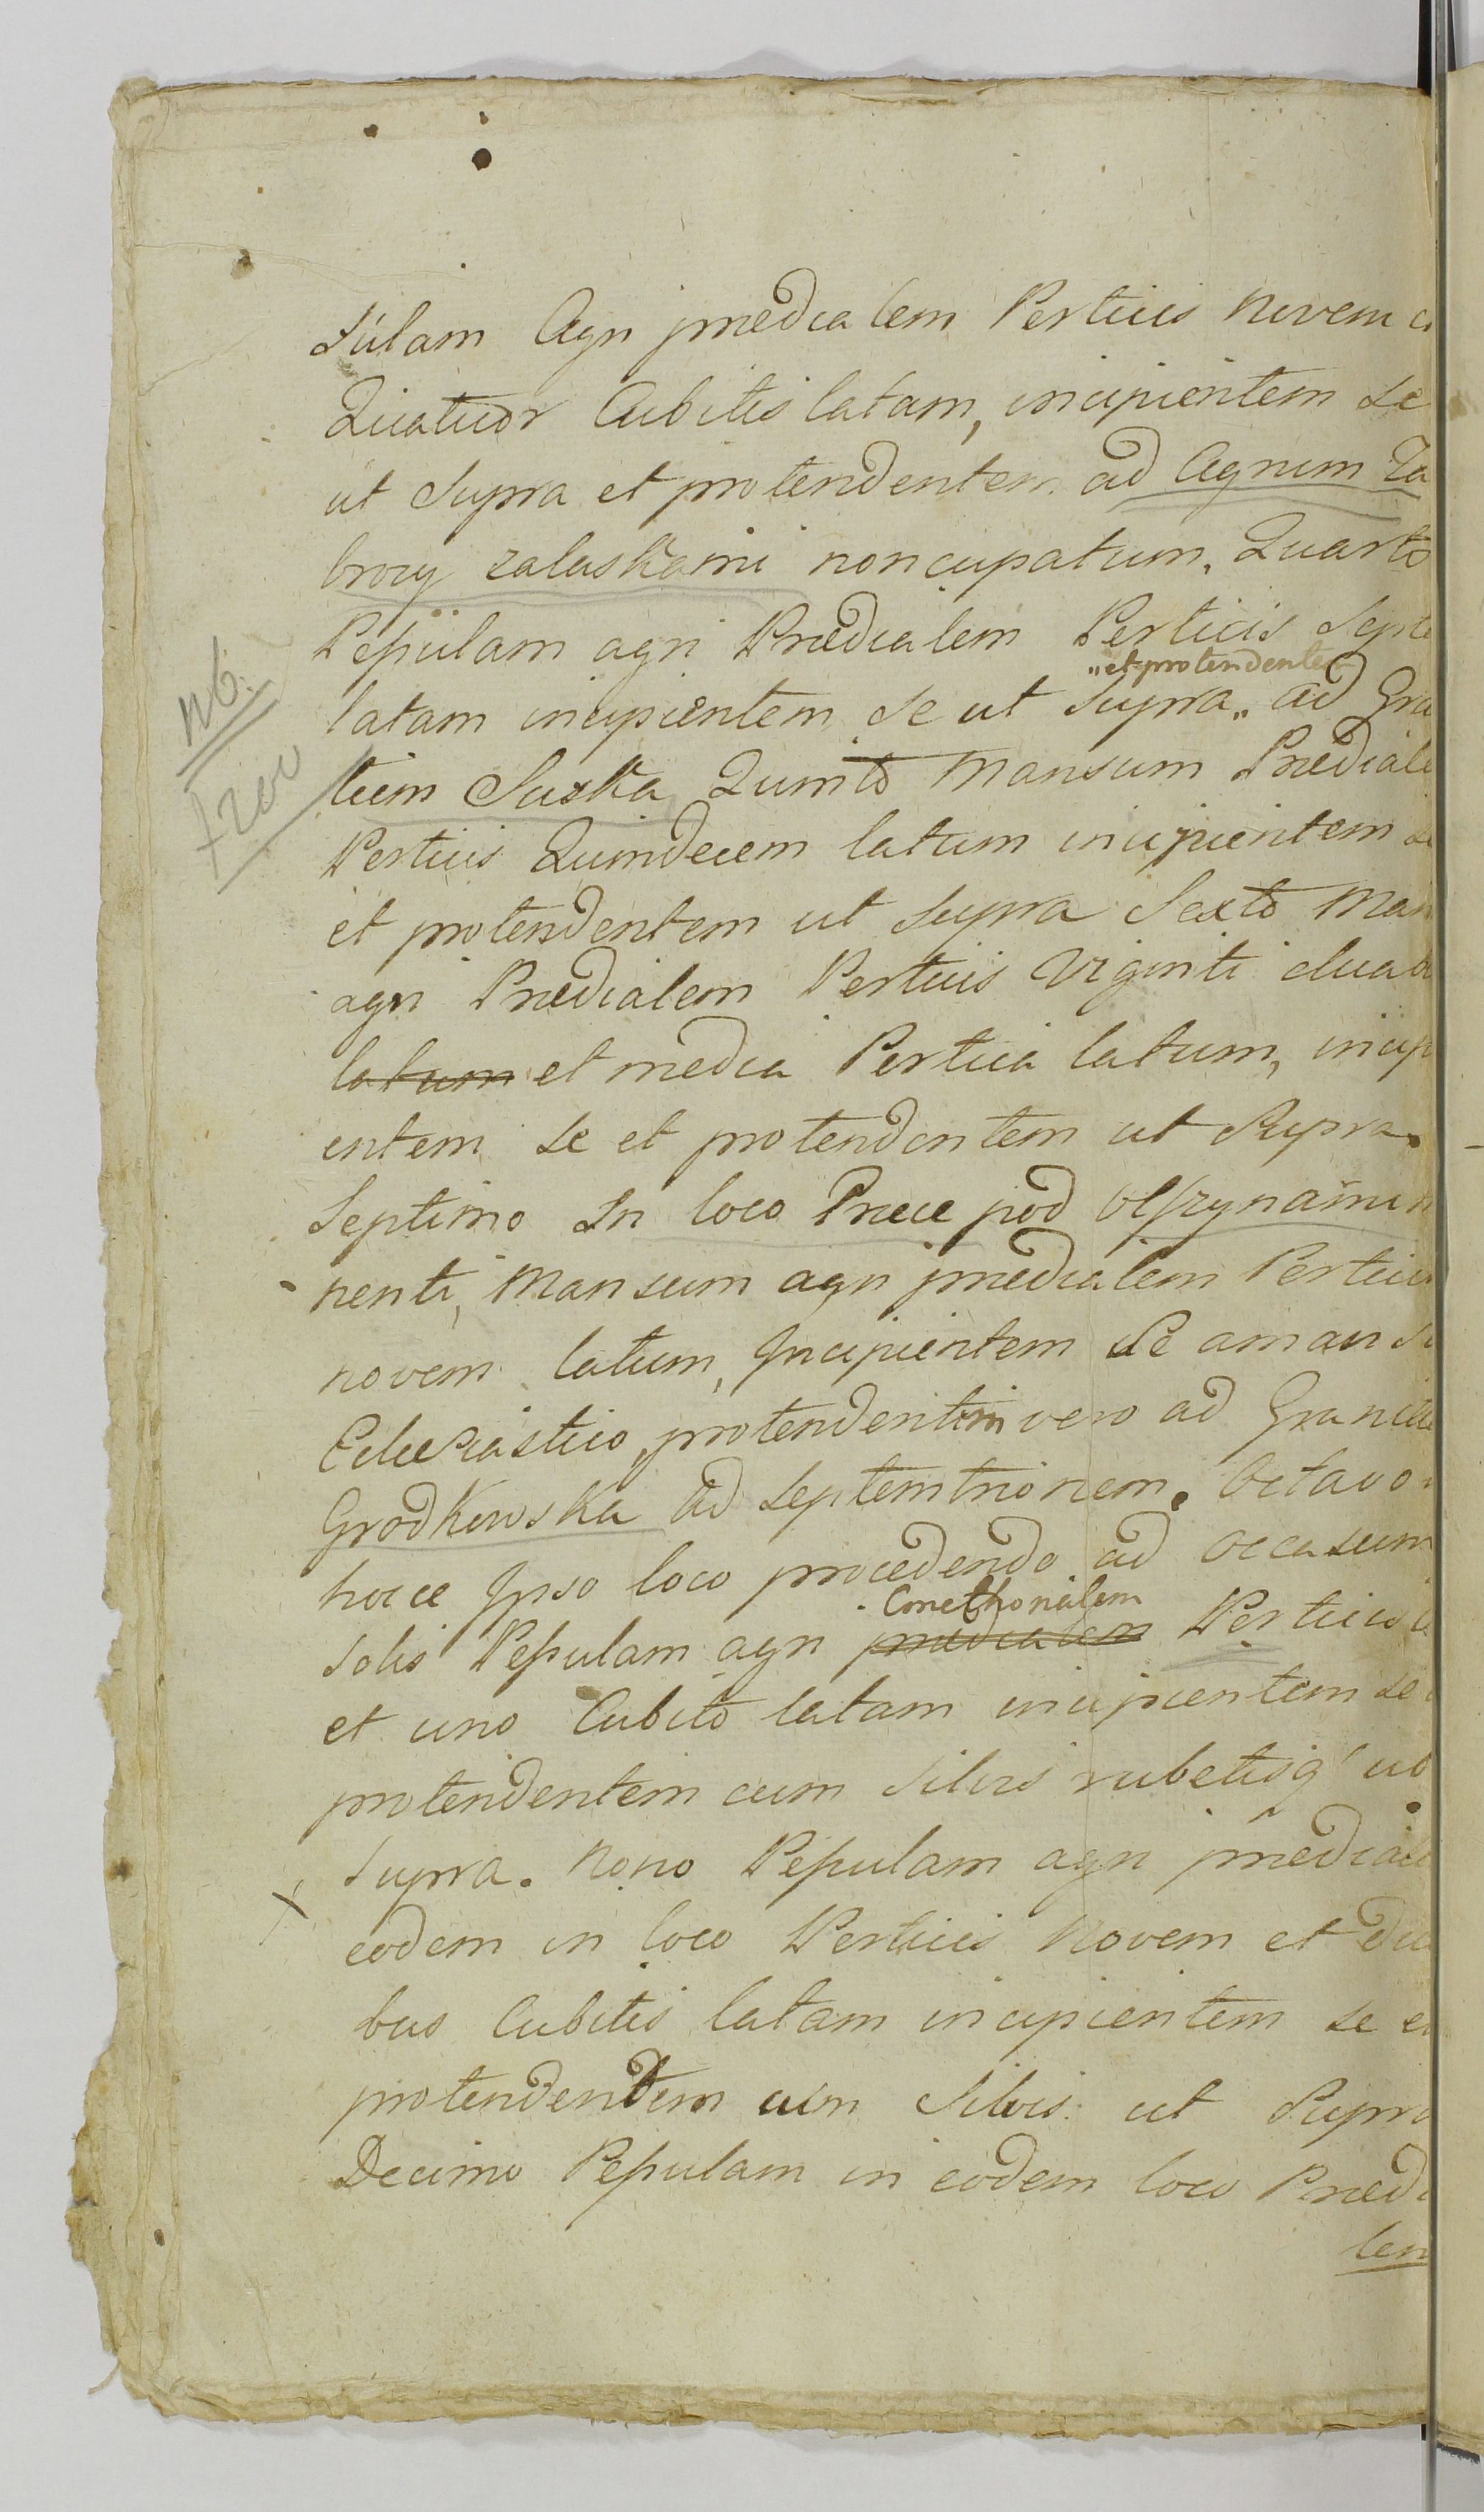 sulam Agri prædialem Perticis Novem
Quatuor Cubitis latam, incipientem se
ut Supra et protendentem ad Agrum Za
browy zalaskami noncupatum. Quarto
Pepulam agri Prædialem Perticis Septe
„et protendentem
latam incipientem se ut Supra „ ad Gra
tiem Suska Quinto Mansum Prædiale
Perticis Quindecem latum incipientem se
et protendentem ut Supra Sexto Man
agri Prædialem Perticis Viginti duab
latum et media Pertica latum, incip
entem se et protendentem ut Supra.
Septimo In loco Præce pod
nenti, Mansum agri prædialem Perticis
novem latum, Incipientem Se a manso
Eclesiastico, protendentem vero ad Granicie
Grodkowska ad Septemtrionem. Octavo
hocce Ipso loco procedendo ad occasum
Cmethonalem
Solis Pepulam agri prædialem Perticis
et uno Cubito latam incipientem se
protendentem cum Silvis rubetisq' ut
Supra. Nono Pepulam agri prædiale
eodem in loco Perticis Novem et dua
bus Cubitis latam incipientem se et
protendentem cum Silvis ut Supra
Decimo Pepulam in eodem loco Prædi
lem
nb.